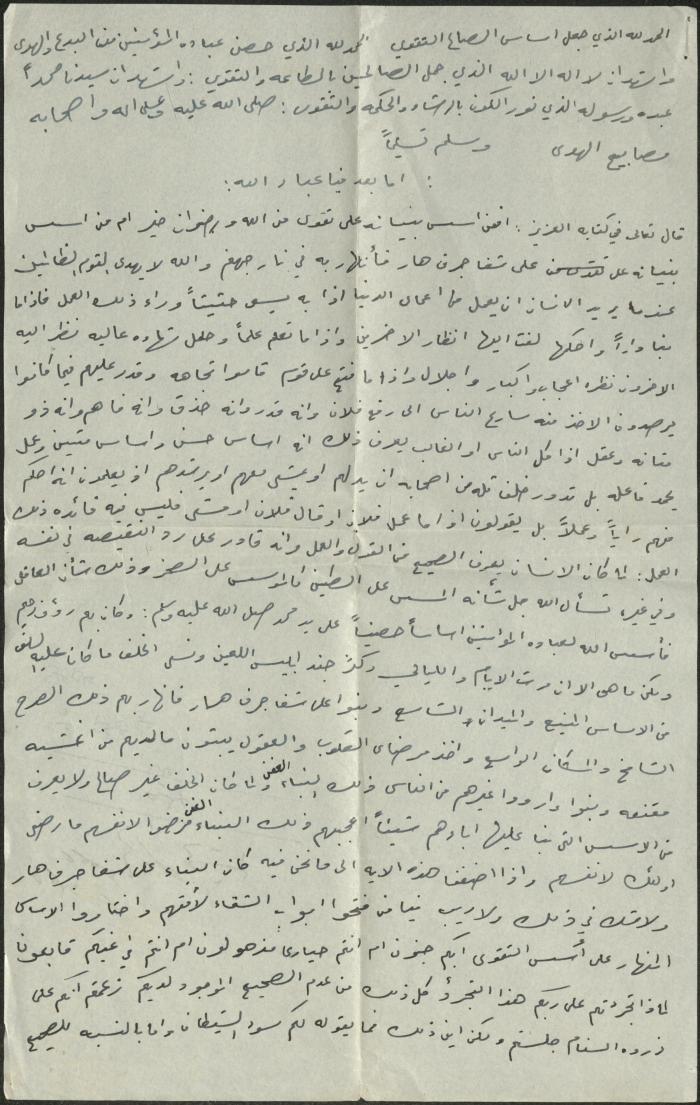 الحمد لله الذي جعل اساس الصالح التقوى الحمد لله الذي حصن عباده المؤمنين من البدع والهدى
واشهد ان لا اله الا الله الذي جمل الصالحين بالطاعه والتقوى : واشهد ان سيدنا محمداً
عبده ورسوله الذي نور الكون بالرشاد والحكمه والتقوى : صلى الله عليه وعلى اله واصحابه
مصابيح الهدى وسلم تسليماً
: اما بعد فيا عباد الله :
قال تعالى في كتابه العزيز : افمن اسس بنيانه على تقوى من الله ورضوان خير ام من اسس
بنيانه على شفا جرف هار فانهار به في نار جهنم والله لا يهدي القوم الظالمين
عندما يريد الانسان ان يعمل من اعمال الدنيا اذا به يسعى حثيثاً وراء ذلك العمل فاذا ما
بنا داراً واحكمها لفت اليها انظار الاخرين واذا ما تعلم علماً وحمل شهاده عاليه نظر اليه
الاخرون نظره اعجاب واكبار واجلال واذا ما فتح على قوم قاموا تجاهه وقدر عليهم فيما كانوا
يرصدون الاخذ منه سارع الناس الى رفع فلان وانه قدر وانه حذق وانه فاهم وانه ذو
متانه وعقل اذا كل الناس او الغالب يعرف ذلك انه اساس حسن واساس متين وعمل
يحمد فاعله بل تدور خلف ثله من اصحابه ان يدلهم او يمشي معهم او يرشدهم اذ يعلمون انه احكم
منهم راياً وعملاً بل يقولون اذا ما عمل فلان او قال فلان او مشى فليس فيه فائده ذلك
العمل : لما كان الانسان يعرف الصحيح من القول والعمل وانه قادر على رد النقيصه في نفسه
وفي غيره نسأل الله جل شأنه المؤسس على الطين كالمؤسس على الصخر وذلك شأن العاقل
فأسس الله لعباده المؤمنين اساساً حصيناً على يد محمد صلى الله عليه وسلم : وكان بهم رؤوف رحيم
ولكن ما هي الا ان مرت الايام والليالي وكر جند ابليس اللعين ونسى الخلف ما كان عليه السلف
من الاساس المنيع والميدان الشاسع وبنوا على شفا جرف هار فانهار بهم ذلك الصرح
الشامخ والمكان الواسع واخذ مرضاى القلوب والعقول يبثون ما لديهم من
مقنعه وبنوا واروا غيرهم من الناس ذلك البناء العفن ولما كان الخلف غير صالح ولا يعرف
من الاسس التى بنا عليها اباءهم شيئاً اعجبهم ذلك البناء العفن فرضوا لانفسهم ما رضى
اولئك لانفسهم واذا اضفنا هذه الايه الى ما نحن فيه كان البناء على شفا جرف هار
ولا شك في ذلك ولا ريب فيا من فتحوا ابواب الشقاء لأمتهم واختاروا الاساس
المنهار على أسس التقوى ابكم جنون ام انتم حيارى مذهولون ام انتم في غيكم قابعون
لماذا تجرئتم على ربكم هذا التجرؤ كل ذلك من عدم الصحيح الموجود لديكم زعمتم انكم على
ذروه السنام جلستم ولكن اين ذلك مما يقوله لكم الشيطان واما بالنسبه للصحيح